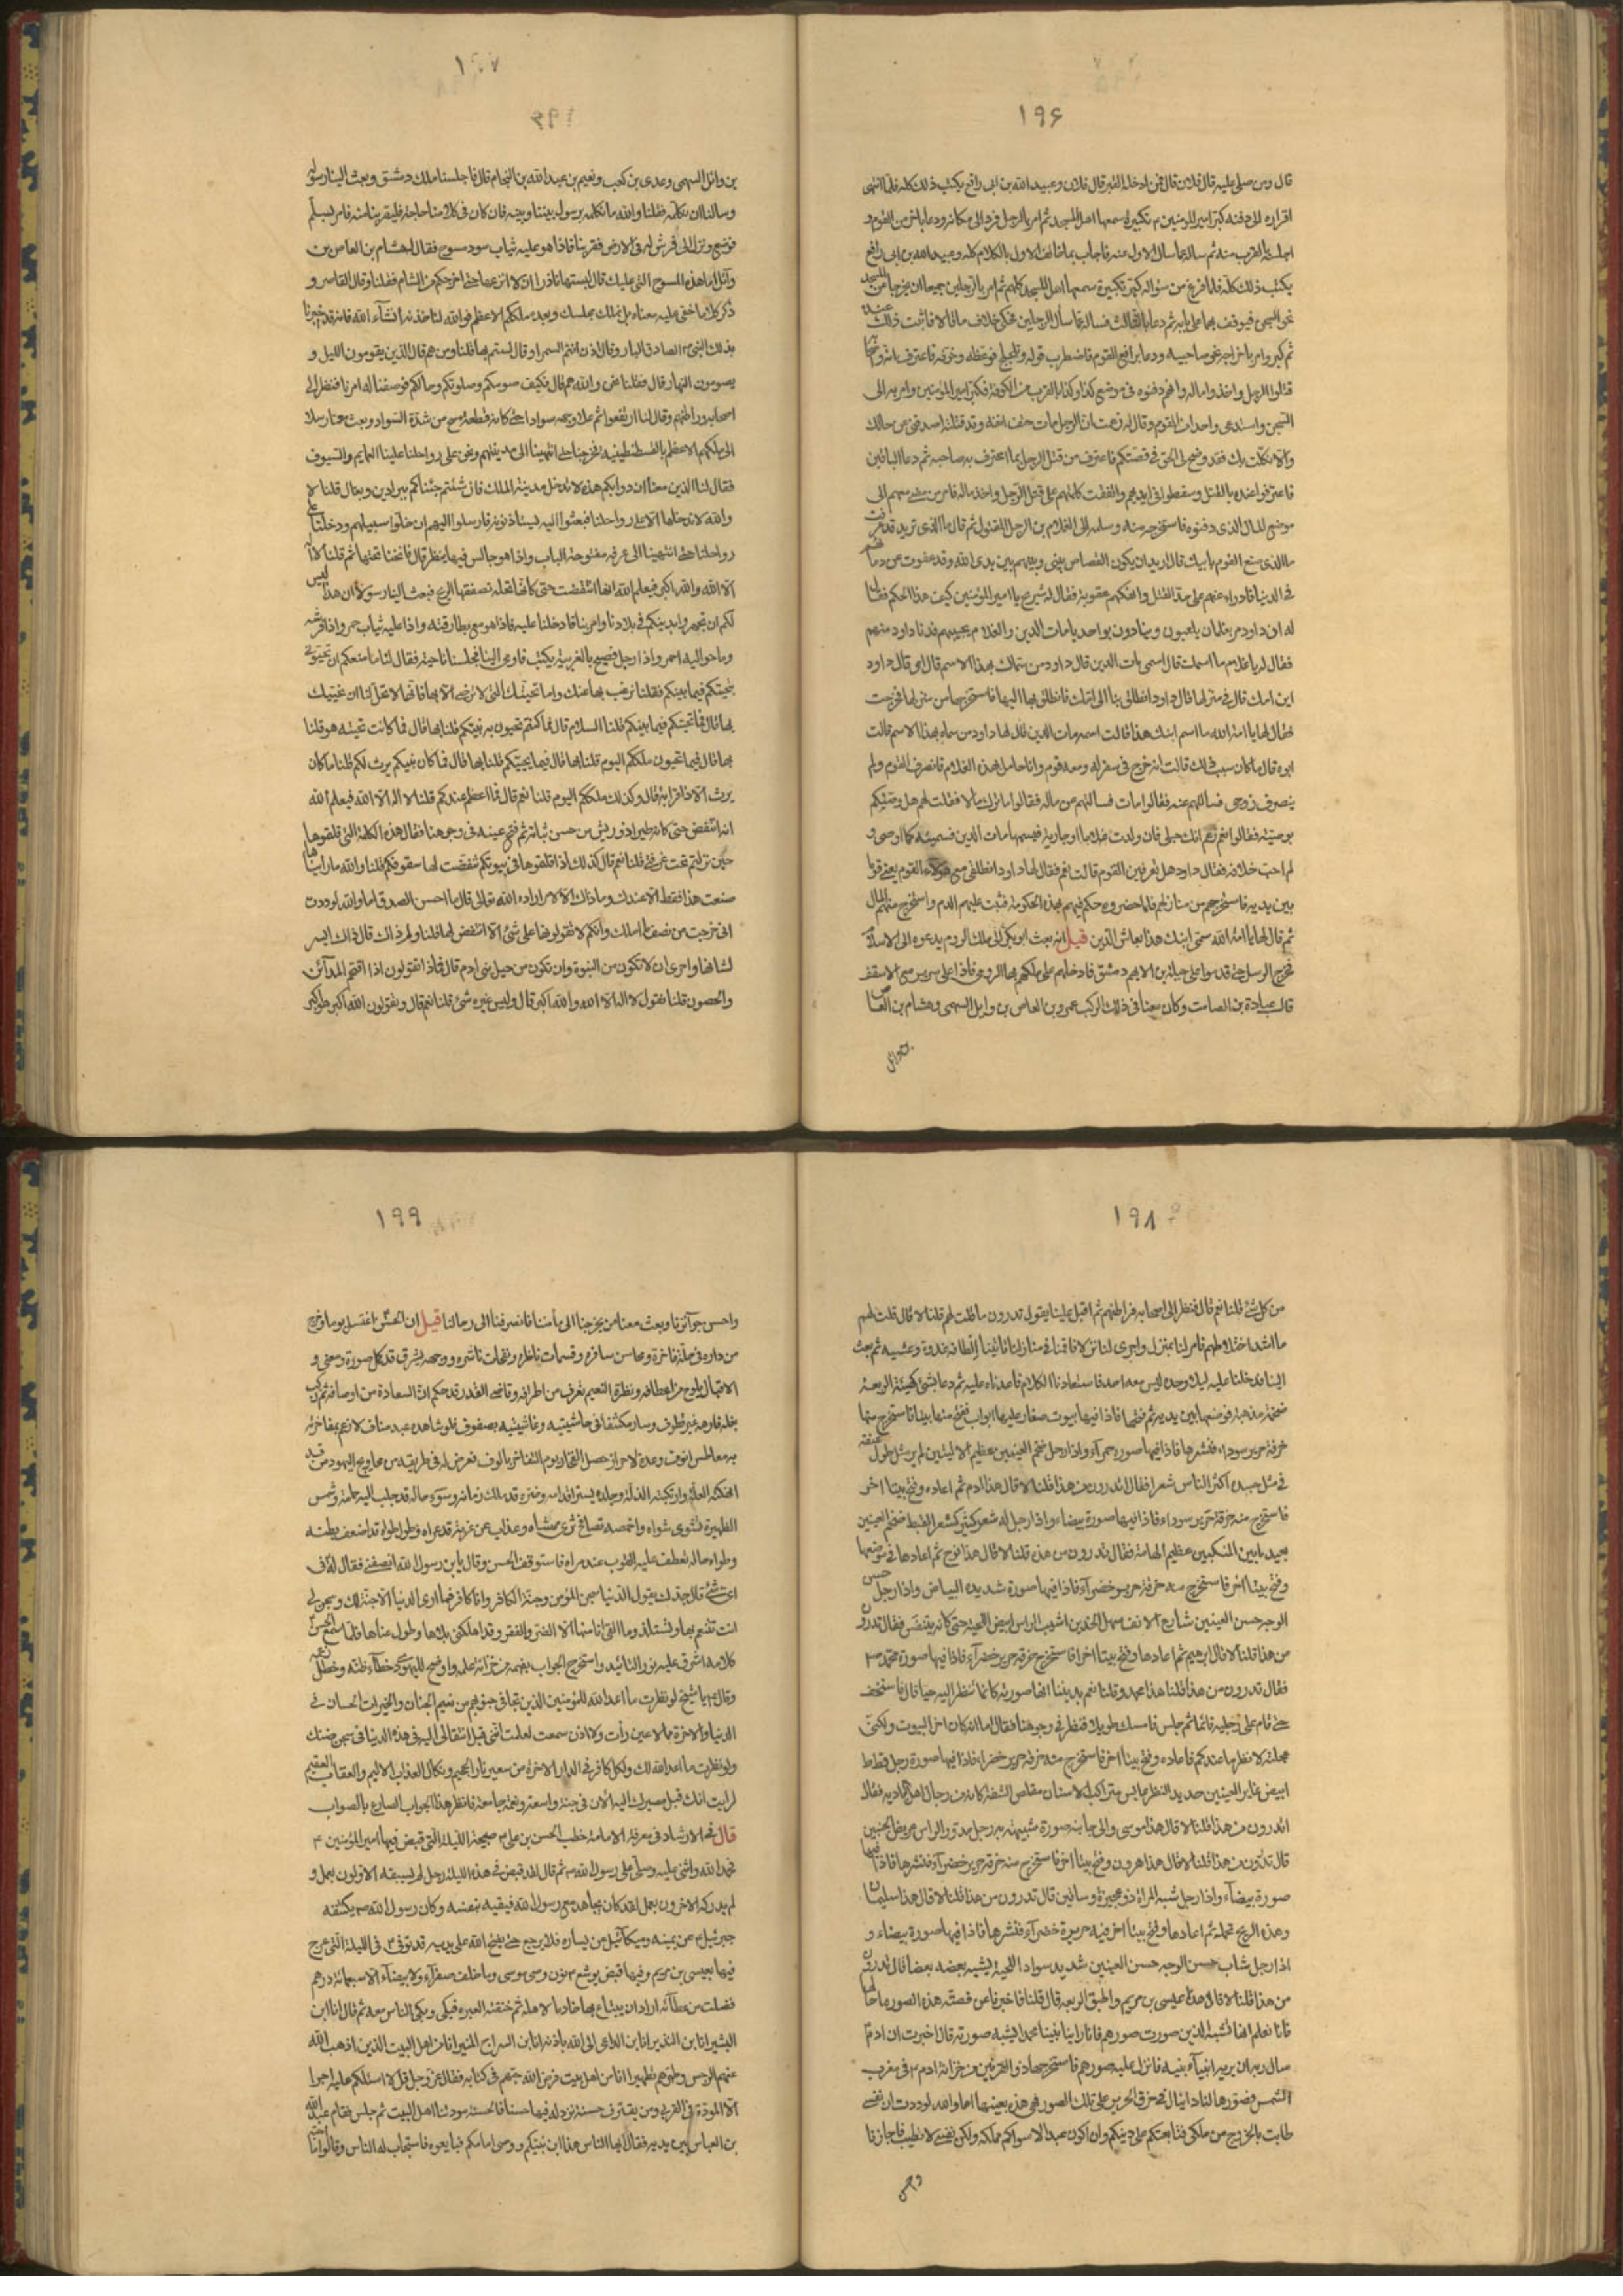 ١٩۶
قال ومن صلى عليه قال فلان قال فمن ادخله القبر قال فلان وعبيد الله بن ابى رافع يكتب ذلك كله فلما انتهى
اقراره الى دفنه كبر امير المؤمنين م تكبيرة سمعها اهل المسجد ثم امر بالرجل فرد الى مكانه ودعا باخر من القوم و
اجلسه بالقرب منه ثم ساله عما سال الاول عنه فاجاب بما خالف الاول بالكلام كله وعبيد الله بن ابى رافع
يكتب ذلك كله فلما فرغ من سؤاله كبر تكبيرة سمعها اهل المسجد كلهم ثم امر بالرجلين جميعا ان يخرجا من المسجد
نحو السجن فيوقف بهما على بابه ثم دعا بالثالث فساله عما سأل الرجلين فحكى خلاف ما قالا فاثبت ذلك عنه
ثم كبر وامر باخراجه نحو صاحبيه ودعا برابع القوم فاضطرب قوله وتلجلج فوعظه وخوفه فاعترف انه واصحابه
قتلوا الرجل واخذوا ماله وانهم دفنوه فى موضع كذا وكذا بالقرب من الكوفة فكبر امير المؤمنين وامر به الى
السجن واستدعى واحدا من القوم وقال له زعمت ان الرجل مات حتف انفه وقد قتلته اصدقنى عن حالك
والا نكلت بك فقد وضح لى الحق فى قصتكم فاعترف من قتل الرجل بما اعترف به صاحبه ثم دعا الباقين
فاعترفوا عنده بالقتل وسقطوا فى ايديهم واتفقت كلمتهم على قتل الرجل واخذ ماله فامر من مضى معهم الى
موضع المال الذى دفنوه فاستخرجه منه وسلمه الى الغلام بن الرجل المقتول ثم قال ما الذى تريد قد عرفت
ما الذى صنع القوم بابيك قال اريد ان يكون القصاص بينى وبينهم بين يدى الله وقد عفوت عن دمائهم
فى الدنيا فادراه عنهم على حد القتل وانهكهم عقوبة فقال له شريح يا امير المؤمنين كيف هذا الحكم فقال
له ان داود مر بغلمان يلعبون وينادون بواحد يا مات الدين والغلام يجيبهم فدنا داود منهم
فقال له يا غلام ما اسمك فقال اسمى مات الدين قال داود من سماك بهذا الاسم قال امى قال داود
اين امك قال فى منزلها قال داود انطلق بنا الى امك فانطلق بها اليها فاستخرجها من منزلها فخرجت
فقال لها يا امة الله ما اسم ابنك هذا قالت اسمه مات الدين قال لها داود من سماه بهذا الاسم قالت
ابوه قال ما كان سبب ذلك قالت انه خرج فى سفر له ومعه قوم وانا حامل بهذا الغلام فانصرف القوم ولم
ينصرف زوجى فسالتهم عنه فقالوا مات فسالتهم عن ماله فقالوا ما ترك مالا فقلت لهم هل وصيكم
بوصية فقالوا نعم زعم انك حبلى فان ولدت غلاما او جارية فسميها مات الدين فسميته كما اوصى و
لم احب خلافه فقال داود هل تعرفين القوم قالت نعم فقال لها داود انطلقى مع هؤلاء القوم يعنى قوما
بين يديه فاستخرجهم من منازلهم فلما حضروه حكم فيهم بهذه الحكومة فثبت عليهم الدم واستخرج منهم المال
ثم قال لها يا امة الله سمى ابنك هذا بعاش الدين قيل انه بعث ابو بكر الى ملك الروم يدعوه الى الاسلام
فخرج الرسل حتى قدموا على جبلة بن الايهم دمشق فادخلهم على ملكهم بها الرومى فاذا على سرير مع الاسقف
قال عبادة بن الصامت وكان معنا فى ذلك الركب عمرو بن العاص بن وايل السهمى وهشام بن العاص
بن وائل
١٩٧
بن وائل السهمى وعدى بن كعب ونعيم بن عبد الله بن النحام قال فاجلسنا ملك دمشق وبعث الينا رسوله
وسالنا ان نكلمه فقلنا والله ما نكلمه برسول بيننا وبينه فان كان فى كلامنا حاجة فليقربنا منه فامر بسلم
فوضع ونزل الى فرش له فى الارض فقربنا فاذا هو عليه ثياب سود مسوح فقال له هشام بن العاص بن
وائل ما هذه المسوح التى عليك قال لبستها ناذرا ان لا انزعها حتى اخرجكم من الشام فقلنا وقال القاسم و
ذكر كلاما خفى عليه معناه بل نملك مجلسك وبعده ملككم الاعظم فوالله لناخذنه انشآء الله فانه قد اخبرنا
بذلك النبى م الصادق البار وقال اذن انتم السمراء قال لستم بها قلنا ومن هم قال الذين يقومون الليل و
يصومون النهار قال فقلنا نحن والله هم قال فكيف صومكم وصلوتكم وحالكم فوصفنا له امرنا فنظر الى
اصحابه وراطنهم وقال لنا ارتفعوا ثم علا وجهه سواد حتى كانه قطعة مسح من شدة السواد وبعث معنا رسلا
الى ملكهم الاعظم بالقسطنطينيه فخرجنا حتى انتهينا الى مدينتهم ونحن على رواحلنا علينا العمايم والسيوف
فقال لنا الذين معنا ان دوابكم هذه لا تدخل مدينة الملك فان شئتم جئناكم ببراذين وبغال قلنا لا
والله لا ندخلها الا على رواحلنا فبعثوا اليه يستاذنونه فارسلوا اليهم ان خلوا سبيلهم ودخلنا على
رواحلنا حتى انتهينا الى غرفة مفتوحة الباب واذا هو جالس فيها ينظر قال فانخنا تحتها ثم قلنا لا اله
الا الله والله اكبر فيعلم الله انها انتفضت حتى كانها نخلة تصفقها الريح فبعث الينا رسولا ان هذا ليس
لكم ان تجهروا بدينكم فى بلادنا وامر بنا فادخلنا عليه فاذا هو مع بطارقته واذا عليه ثياب حمر واذا فرشه
وما حواليه احمر واذا رجل فصيح بالعربية يكتب فاومى الينا فجلسنا ناحية فقال لنا ما منعكم ان تحيونى
بتحيتكم فيما بينكم فقلنا نرغب بها عنك واما تحيتك التى لا ترضى الا بها فانها لا تحل لنا ان نحييك
بها قال فما تحيتكم فيما بينكم قلنا السلام قال فما كنتم تحيون به نبيكم قلنا بها قال فما كانت تحيته هو قلنا
بها قال فيما تحيون ملككم اليوم قلنا بها قال فيما يحييكم قلنا بها قال فما كان نبيكم يرث لكم قلنا ما كان
يرث الا ذا قرابة قال وكذلك ملككم اليوم قلنا نعم قال فما اعظم عندكم قلنا لا اله الا الله فيعلم الله
انه انتفض حتى كانه طير اذو ريش من حسن ثيابه ثم فتح عينه فى وجوهنا فقال هذه الكلمة التى قلتموها
حين نزلتم تحت غرفتى قلنا نعم قال كذلك اذا قلتموها فى بيوتكم تنفضت لها سقوفكم قلنا والله ما رايناها
صنعت هذا قط الا عندك وما ذاك الا لامر اراده الله تعالى قال ما احسن الصدق اما والله لوددت
انى خرجت من نصف ما املك وانكم لا تقولونها على شئ الا انتفض لها قلنا ولم ذاك قال ذاك ايسر
لشانها واحرى ان لا تكون من النبوة وان تكون من حيل بنى ادم قال فماذا تقولون اذا افتتحتم المدآئن
والحصون قلنا نقول لا اله الا الله والله اكبر قال وليس غيره شئ قلنا نعم قال وتقولون الله اكبر هو اكبر
١٩٨
من كل شئ قلنا نعم قال فنظر الى اصحابه فراطنهم ثم اقبل علينا يقول تدرون ما قلت لهم قلنا لا قال قلت لهم
ما اشد اختلاطهم فامر لنا بمنزل واجرى لنا نزلا فاقمنا فى منازلنا تاتينا الطافه غدوة وعشية ثم بعث
الينا فدخلنا عليه ليلا وحده ليس معه احد فاستعادنا الكلام فاعدناه عليه ثم دعا بشئ كهيئة الربعة
ضخمة مذهبة فوضعها بين يديه ثم فتحها فاذا فيها بيوت صغار عليها ابواب ففتح منها بيتا فاستخرج منها
خرقة حرير سوداء فنشرها فاذا فيها صورة حمرآء واذا رجل ضخم العينين عظيم الاليتين لم ير مثل طول عنقه
فى مثل جسده اكثر الناس شعرا فقال اتدرون من هذا قلنا لا قال هذا ادم ثم اعاده وفتح بيتا اخر
فاستخرج منه خرقة حرير سوداء فاذا فيها صورة بيضاء واذا رجل له شعر كثير كشعر القبط ضخم العينين
بعيد ما بين المنكبين عظيم الهامة فقال تدرون من هذا قلنا لا قال هذا نوح ثم اعادها فى موضعها
وفتح بيتا اخر فاستخرج منه خرقة حرير خضرآء فاذا فيها صورة شديدة البياض واذا رجل حسن
الوجه حسن العينين شارع الانف سهل الخدين اشيب الراس ابيض اللحية حتى كانه يتنفس فقال تدرون
من هذا قلنا لا قال ابرهيم ثم اعادها وفتح بيتا اخر فاستخرج خرقة حرير خضرآء فاذا فيها صورة محمد م
فقال تدرون من هذا قلنا هذا محمد وقلنا نعم بديننا انها صورته كانما ننظر اليه حيا قال فاستخف
حتى قام على رجليه قائما ثم جلس فامسك طويلا فنظر فى وجوهنا فقال اما انه كان اخر البيوت ولكنى
عجلته لانظر ما عندكم فاعاده وفتح بيتا اخر فاستخرج منه خرقة حرير خضراء فاذا فيها صورة رجل قطاط
ابيض غاير العينين حديد النظر عابس متراكب الاسنان مقلص الشفة كانه من رجال اهل البادية فقال
اتدرون من هذا قلنا لا قال هذا موسى والى جانبه صورة شبيهة به رجل مدور الراس عريض الجبين
قال تدرون من هذا قلنا لا قال هذا هرون وفتح بيتا اخر فاستخرج منه خرقة حرير خضرآء فنشرها فاذا فيها
صورة بيضآء واذا رجل شبه المراة ذو عجيزة وساقين قال تدرون من هذا قلنا لا قال هذا سليمان
وهذه الريح تحمله ثم اعادها وفتح بيتا اخر فيه حريرة خضرآء فنشرها فاذا فيها صورة بيضاء و
اذا رجل شاب حسن الوجه حسن العينين شديد سواد اللحية يشبه بعضه بعضا قال تدرون
من هذا قلنا لا قال هذا عيسى بن مريم واطبق الربعة قال قلنا فاخبرنا عن قصة هذه الصور ما حالها
فانا نعلم انها تشبه الذين صورت صورهم فانا راينا نبينا محمدا يشبه صورته قال اخبرت ان ادم م
سال ربه ان يريه انبيآء بنيه فانزل عليه صورهم فاستخرجها ذو القرنين من خزانة ادم م فى مغرب
الشمس فصورها لنا دانيال فى خرق الحرير على تلك الصور فهى هذه بعينها اما والله لوددت ان نفسى
طابت بالخروج من ملكى فتابعتكم على دينكم وان اكون عبدا لاسواكم ملكه ولكن نفسى لا تطيب فاجازنا
واحسن
١٩٩
واحسن جوآئزنا وبعث معنا من يخرجنا الى مأمننا فانصرفنا الى رحالنا قيل ان الحسن اغتسل يوما وخرج
من داره فى حلة فاخرة ومحاسن سافرة وقسمات ناظرة ونفحات ناشرة ووجهه يشرق قد كمل صورة ومعنى و
الاقبال يلوح من اعطافه ونظرة النعيم تعرف من اطرافه وقاضى القدر قد حكم ان السعادة من اوصافه ثم ركب
بغلة فارهة غير قطوف وسار مكتنفا فى حاشيته وغاشيته بصفوف فلو شاهده عبد مناف لارغم بمفاخرته
به معاطس انوف وعده لاحراز خصل الفخار يوم التفاخر بالوف فعرض له فى طريقه من محاويج اليهود من قد
انهكته العلة وارتكبته الذلة وجلده يستر اعظامه وفقره قد ملك زمامه وسوء حاله قد جلب اليه حمامه وشمس
الظهيرة تشوى شواه واخمصه تصافح ثرى ممشاه وعذاب عر عريه قد عراه وطول طواه قد اضعف بطنه
وطواه حاله تعطف عليه القلوب عند مراه فاستوقف الحسن وقال يا بن رسول الله انصفنى فقال له فى
اى شئ قال جدك يقول الدنيا سجن المؤمن وجنة الكافر وانا كافر فما ارى الدنيا الا جنة لك وسجن لى
انت تتنعم بها وتستلذ وما القى انا منها الا الضر والفقر وقد اهلكنى بلاها وطول عناها فلما سمع الحسن
كلامه اشرق عليه نور التائيد واستخرج الجواب بفهمه من خزانة علمه واوضح لليهودى خطآء ظنه وخطل زعمه
وقال م يا شيخ لو نظرت ما اعد الله للمؤمنين الذين تتجافى جنوبهم من نعيم الجنان والخيرات الحسان فى
الدنيا والاخرة مما لا عين رأت ولا اذن سمعت لعلمت انى قبل انتقالى اليه فى هذه الدنيا فى سجن ضنك
ولو نظرت ما اعد الله لك ولكل كافر فى الدار الاخرة من سعير نار الجحيم ونكال العذاب الاليم والعقاب العقيم
لرايت انك قبل مصيرك اليه الان فى جنة واسعة ونعمة جامعة فانظر هذا الجواب الصارع بالصواب
قال فى الارشاد فى معرفة الامامة خطب الحسن بن على م صبيحة الليلة التى قبض فيها امير المؤمنين م
فحمد الله واثنى عليه وصلى على رسول الله م ثم قال لقد قبض فى هذه الليلة رجل لم يسبقه الاولون بعمل و
لم يدركه الاخرون بعمل لقد كان يجاهد مع رسول الله فيقيه بنفسه وكان رسول الله م يكنفه
جبرئيل م عن يمينه وميكآئيل عن يساره فلا يرجع حتى يفتح الله على يديه قد توفى م فى الليلة التى عرج
فيها بعيسى بن مريم وفيها قبض يوشع بن نون وصى موسى وما خلف صفرآء ولا بيضآء الا سبعمائة درهم
فضلت من عطآئه اراد ان يبتاع بها خادما لاهله ثم خنقته العبرة فبكى وبكى الناس معه ثم قال انا ابن
البشير انا ابن النذير انا بن الداعى الى الله باذنه انا بن السراج المنير انا من اهل البيت الذين اذهب الله
عنهم الرجس وطهرهم تطهيرا انا من اهل بيت فرض الله حبهم فى كتابه فقال عز وجل قل لا اسئلكم عليه اجرا
الا المودة فى القربى ومن يقترف حسنة نزد له فيها حسنا فالحسنة مودتنا اهل البيت ثم جلس فقام عبد الله
بن العباس بين يديه فقال ايها الناس هذا ابن نبيكم ووصى امامكم فبايعوه فاستجاب له الناس وقالوا